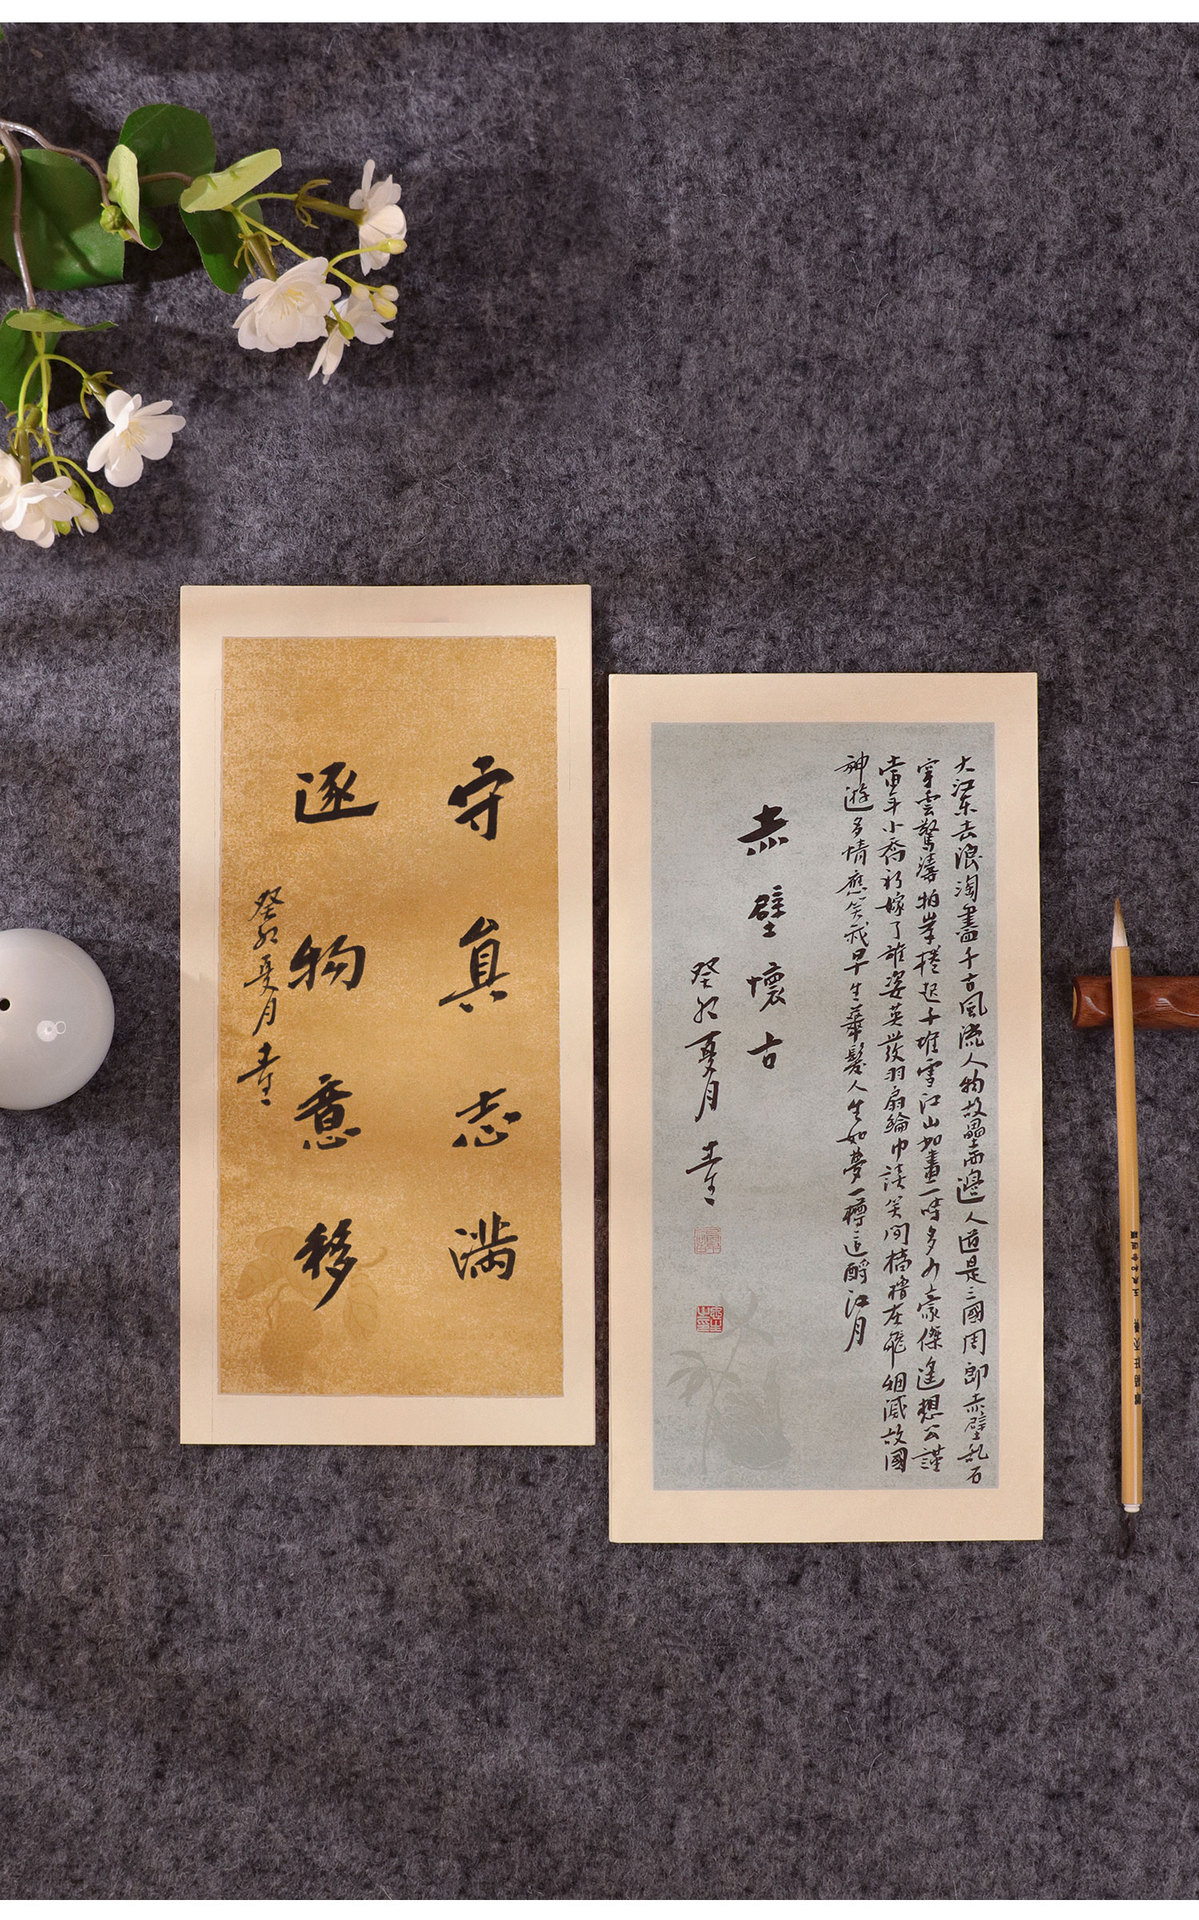 守真志满
逐物意移
癸卯夏月
大江东去浪淘盡千古風流人物故壘西邊人道是三國周郎赤壁乱石
穿雲驚濤拍岸捲起千堆雪江山如畫一時多少豪傑遙想公謹
當年小喬初嫁了雄姿英發羽扇綸巾談笑间檣櫓灰飛烟滅故國
神遊多情應笑我早生華髮人生如夢一樽還酹江月
赤壁懷古
癸卯夏月